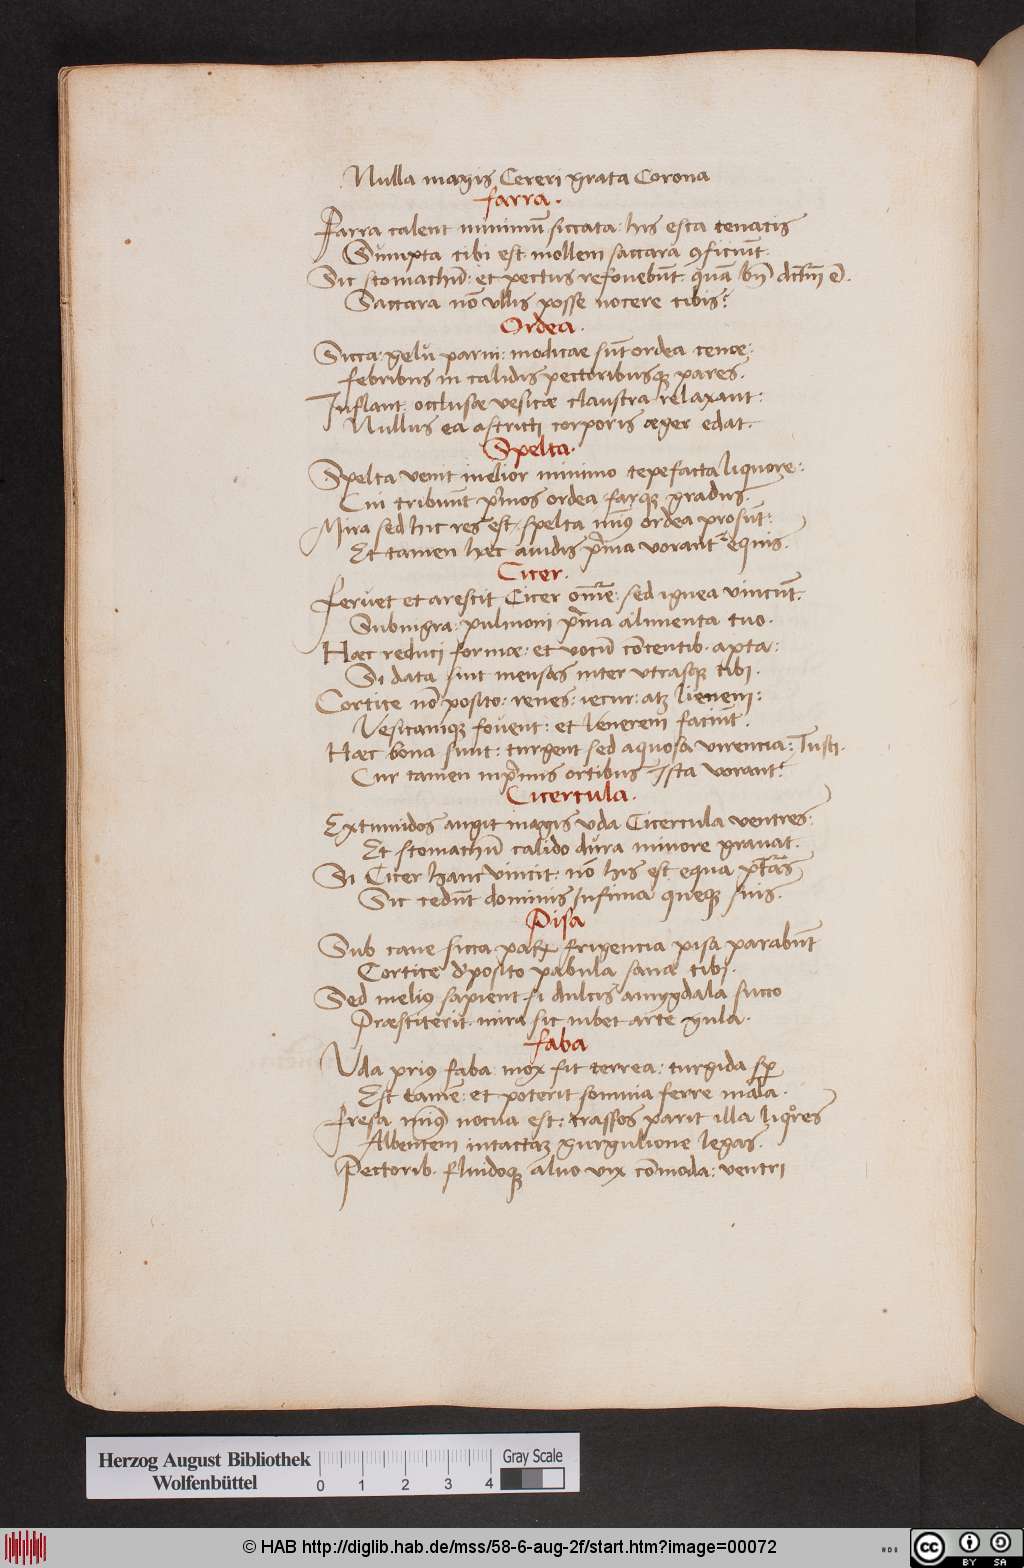 Nulla magis Cereri grata Corona
farra.
Farra calent minimū siccata: his esca tenacis
Sumpta cibi est. mollem saccara 9ficiūt.
Sic stomachū: et pectus refouebūt: quā bn̄ dictm̄ ē.
Saccara nō vllis posse nocere cibis:
Ordea.
Sicca: gelu parui: modicae sūt ordea cenae:
febribus in calidis pectoribusq; pares.
Inflant: occlusae vesicae claustra relaxant:
Nullus ea astricti corporis aeger edat.
Spelta.
Spelta venit melior minimo tepefacta liquore:
Cui tribuūt p̄mos ordea farq; gradus.
Mira sed hic res est. spelta min9 ordea prosūt:
Et tamen haec auidis p̄ma vorant equis.
Cicer.
Feruet et arescit Cicer om̄e: sed ignea vincūt.
Subnigra: pulmoni p̄ma alimenta tuo.
Haec reduci formae: et vocū cōcentib. apta:
Si data sint mensas inter vtrasq; tibi.
Cortice nō posito: renes: iecur: atq; lienem:
Vesicamq; fouent: et Venerem faciūt.
Haec bona sunt: turgent sed aquosa virencia: Tusci.
Cur tamen in p̄mis ortibus ista vorant:
Cicercula.
Extumidos augit magis vda Cicercula ventres:
Et stomachū calido dura minore grauat.
Si Cicer hanc vincit: nō his est equa ptās
Sic cedūt dominis infima queq; suis.
Pisa
Sub cane sicca frigencia pisa parabūt
Cortice dposito pabula sana cibi.
Sed meli9 sapient si dulcis amygdala succo
Praestiterit. mira sic iubet arte gula.
faba
Vda pri9 faba mox fit terrea: turgida sp̄
Est tamē: et poterit somnia ferre mala.
Fresa min9 nocua est: crassos parit illa liq̊res
Albentem intactaq; gurgulione legas.
Pectorib. fluidoq; aluo vix cōmoda: ventri
Herzog August Bibliothek
Wolfenbüttel
0 1 2 3 4
Gray Scale
© HAB http://diglib.hab.de/mss/58-6-aug-2f/start.htm?image=00072
cc BY SA